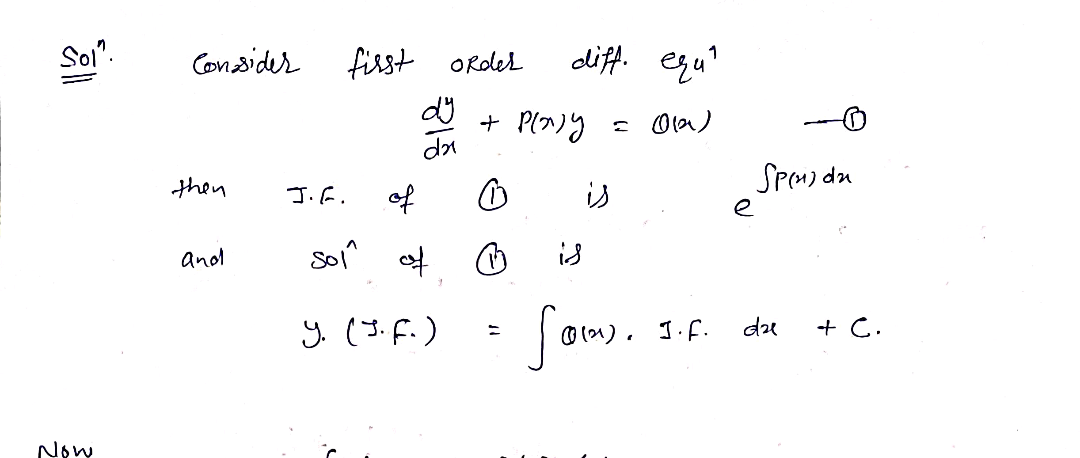 Solⁿ. Consider first order diff. equⁿ
dy/dx + P(x)y = Q(x) —①
then I.F. of ① is e^∫P(x)dx
and solⁿ of ① is
y. (I.F.) = ∫Q(x). I.F. dx + C.
Now